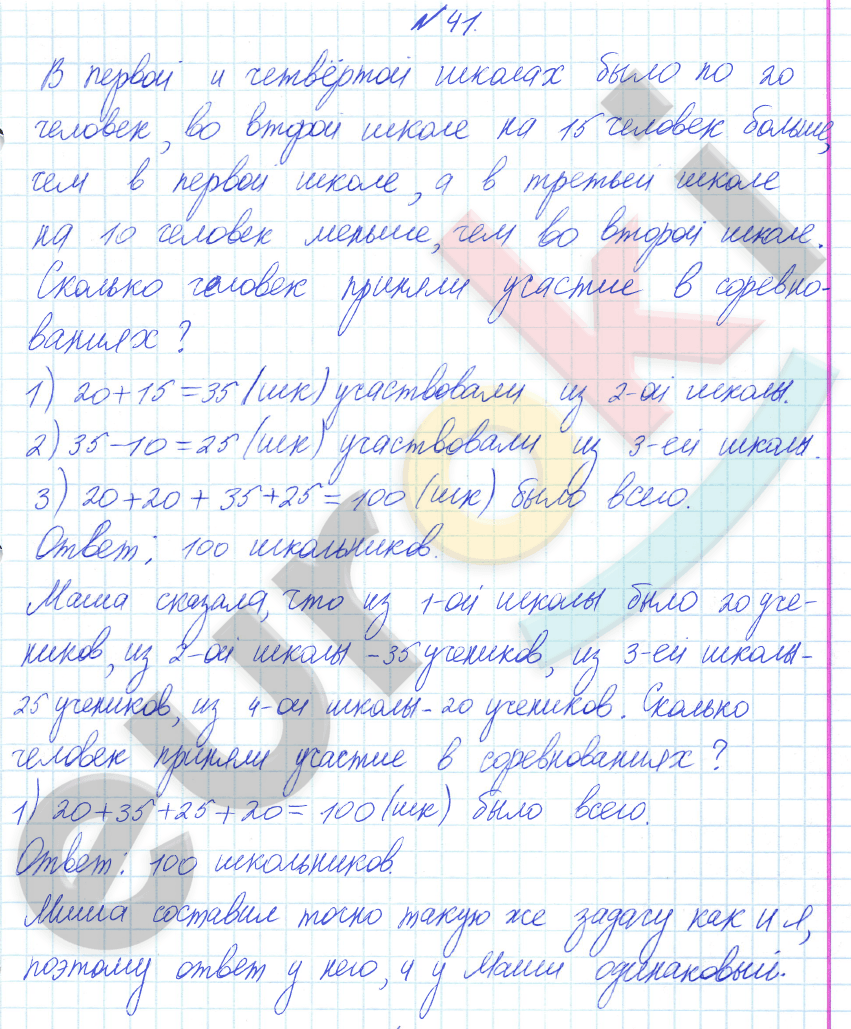 № 41.
В первой и четвёртой школах было по 20
человек, во второй школе на 15 человек больше,
чем в первой школе, а в третьей школе
на 10 человек меньше, чем во второй школе.
Сколько человек приняли участие в соревно-
ваниях?
1) 20+15=35 (шк) участвовали из 2-ой школы.
2) 35-10=25 (шк) участвовали из 3-ей школы.
3) 20+20+35+25=100 (шк) было всего.
Ответ: 100 школьников.
Маша сказала, что из 1-ой школы было 20 уче-
ников, из 2-ой школы - 35 учеников, из 3-ей школы-
25 учеников, из 4-ой школы - 20 учеников. Сколько
человек приняли участие в соревнованиях?
1) 20+35+25+20= 100 (шк) было всего.
Ответ: 100 школьников.
Миша составил точно такую же задачу как и я,
поэтому ответ у него, и у Маши одинаковый.
euroki